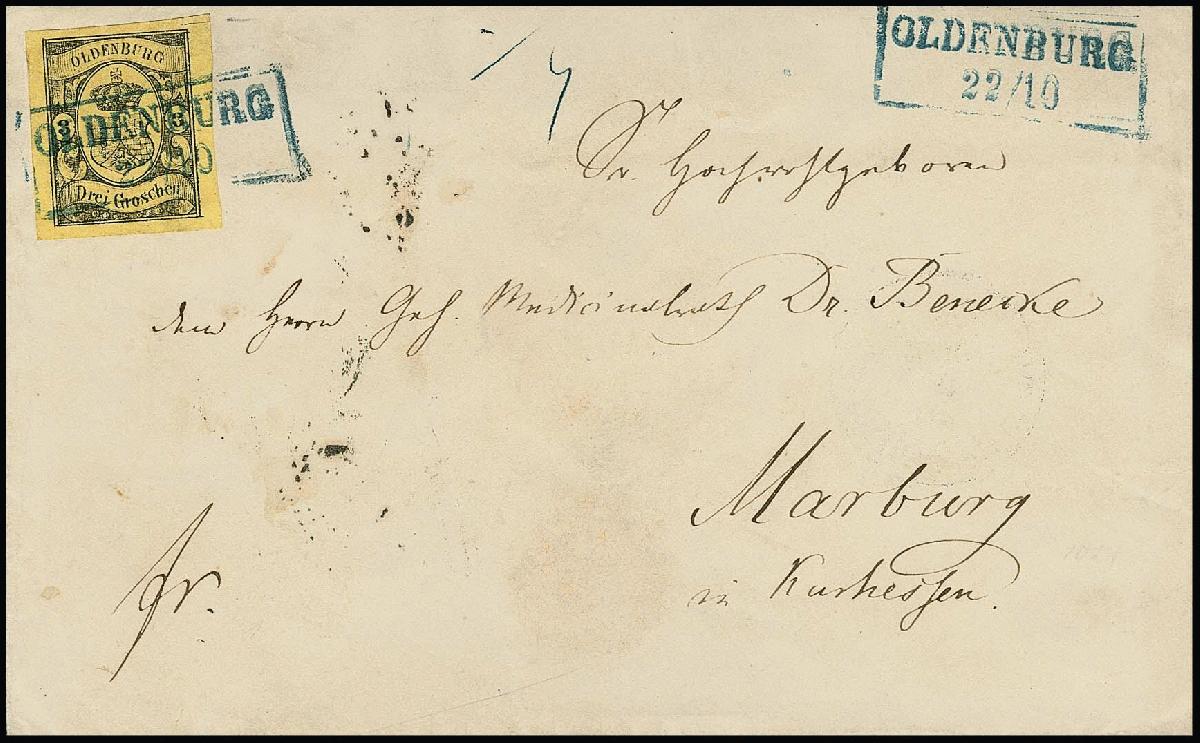 OLDENBURG
3 3
Drei Groschen
OLDENBURG
OLDENBURG
22/10
Sr. Hochwohlgeboren
dem Herrn Geh. Medicinalrath Dr. Benecke
Marburg
in Kurhessen.
fr.